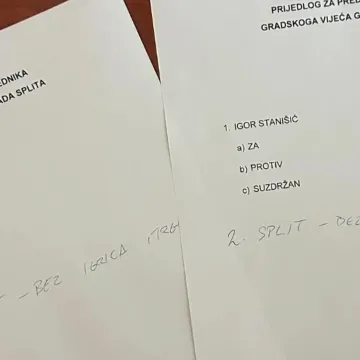 EDNIKA
ADA SPLITA
- BEZ IGRICA,
PRIJEDLOG ZA PRED
GRADSKOGA VIJEĆA G
1. IGOR STANIŠIĆ
a) ZA
b) PROTIV
c) SUZDRŽAN
2. SPLIT - BEZ